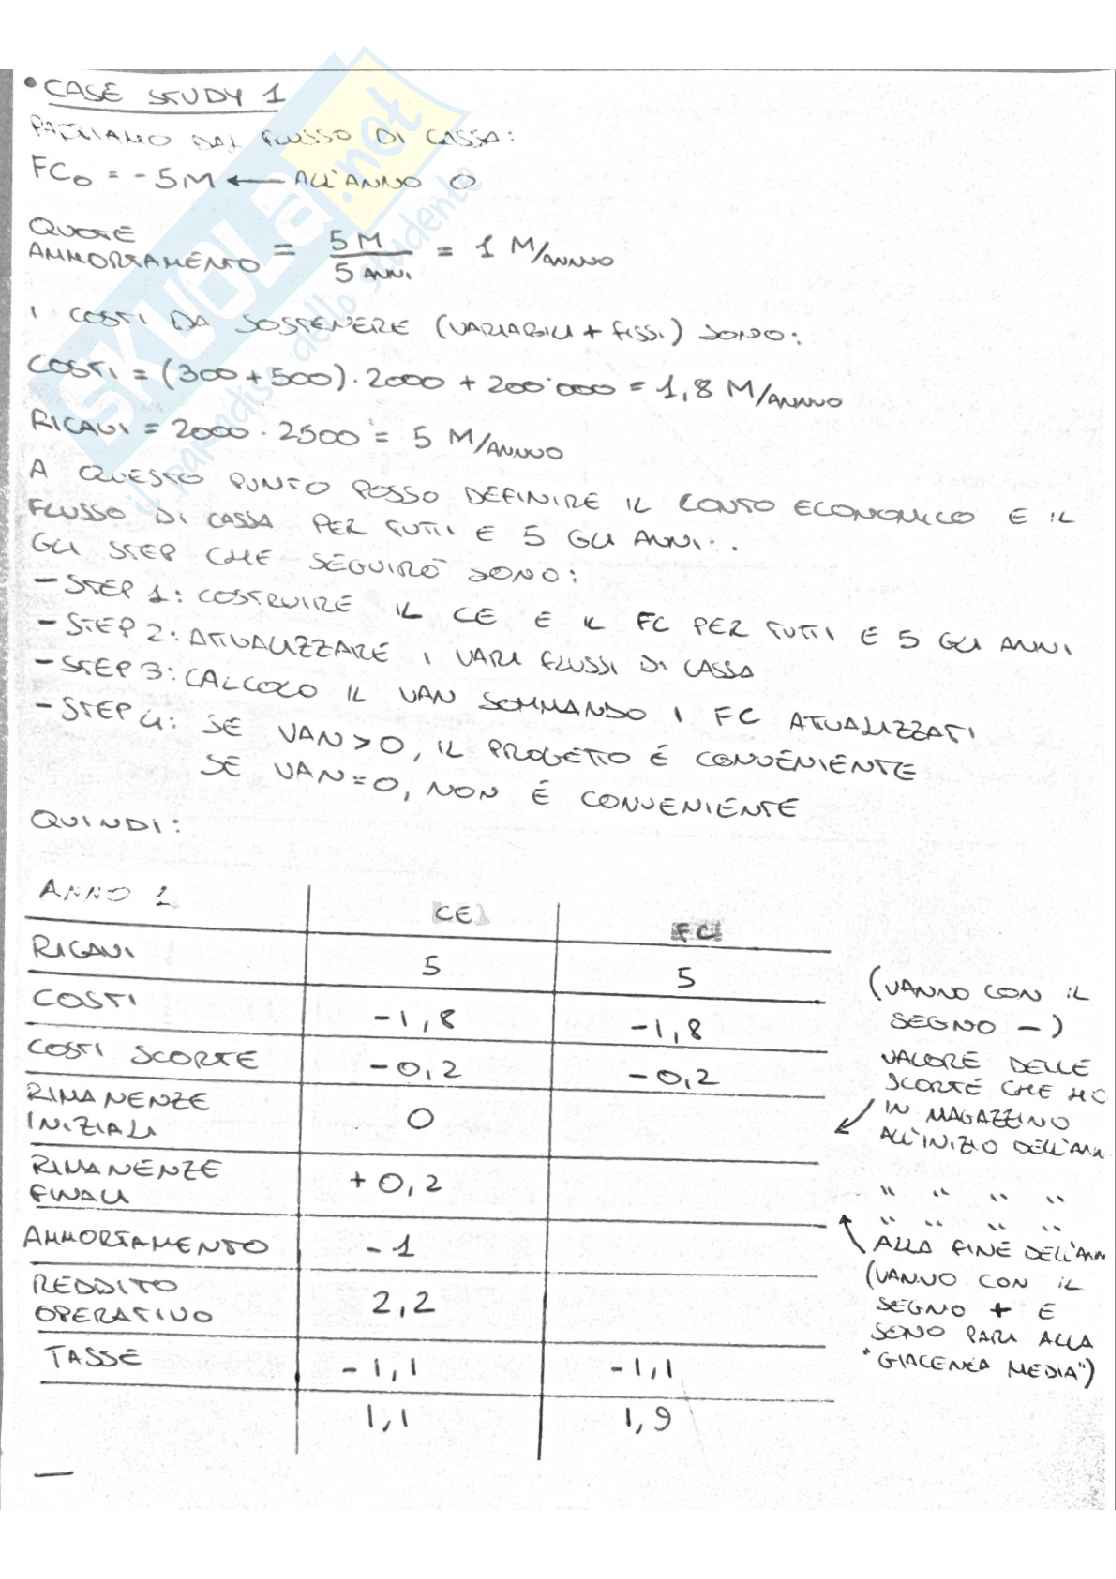 • CASE STUDY 1
PARTIAMO DAL FLUSSO DI CASSA:
FC₀ = - 5M ← ALL'ANNO 0
QUOTE AMMORTAMENTO = 5 M / 5 ANNI = 1 M/ANNO
I COSTI DA SOSTENERE (VARIABILI + FISSI) SONO:
COSTI = (300 + 500) · 2000 + 200'000 = 1,8 M/ANNO
RICAVI = 2000 · 2500 = 5 M/ANNO
A QUESTO PUNTO POSSO DEFINIRE IL CONTO ECONOMICO E IL
FLUSSO DI CASSA PER TUTTI E 5 GLI ANNI.
GLI STEP CHE SEGUIRÒ SONO:
- STEP 1: COSTRUIRE IL CE E IL FC PER TUTTI E 5 GLI ANNI
- STEP 2: ATTUALIZZARE I VARI FLUSSI DI CASSA
- STEP 3: CALCOLO IL VAN SOMMANDO I FC ATTUALIZZATI
- STEP 4: SE VAN>0, IL PROGETTO È CONVENIENTE
SE VAN=0, NON È CONVENIENTE
QUINDI:
ANNO 1 CE FC
RICAVI 5 5
COSTI -1,8 -1,8
COSTI SCORTE -0,2 -0,2
RIMANENZE INIZIALI 0
RIMANENZE FINALI +0,2
AMMORTAMENTO -1
REDDITO OPERATIVO 2,2
TASSE -1,1 -1,1
1,1 1,9
(VANNO CON IL
SEGNO -)
VALORE DELLE
SCORTE CHE HO
IN MAGAZZINO
ALL'INIZIO DELL'ANN
" " " "
" " " "
ALLA FINE DELL'ANN
(VANNO CON IL
SEGNO + E
SONO PARI ALLA
"GIACENZA MEDIA")
SKUOLA.net
il paradiso dello studente